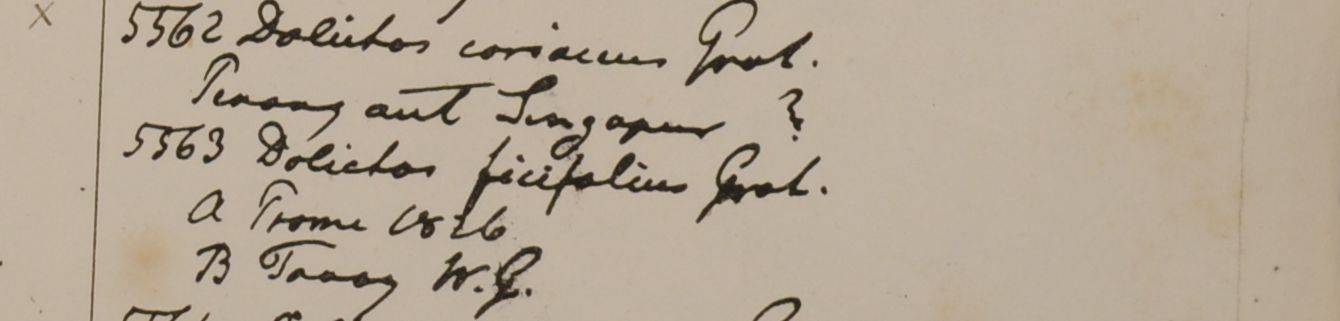 x
5562 Dolichos coriaceus Grah.
Penang aut Singapur ?
5563 Dolichos ficifolius Grah.
A Prome 1826
B Tavoy W.G.